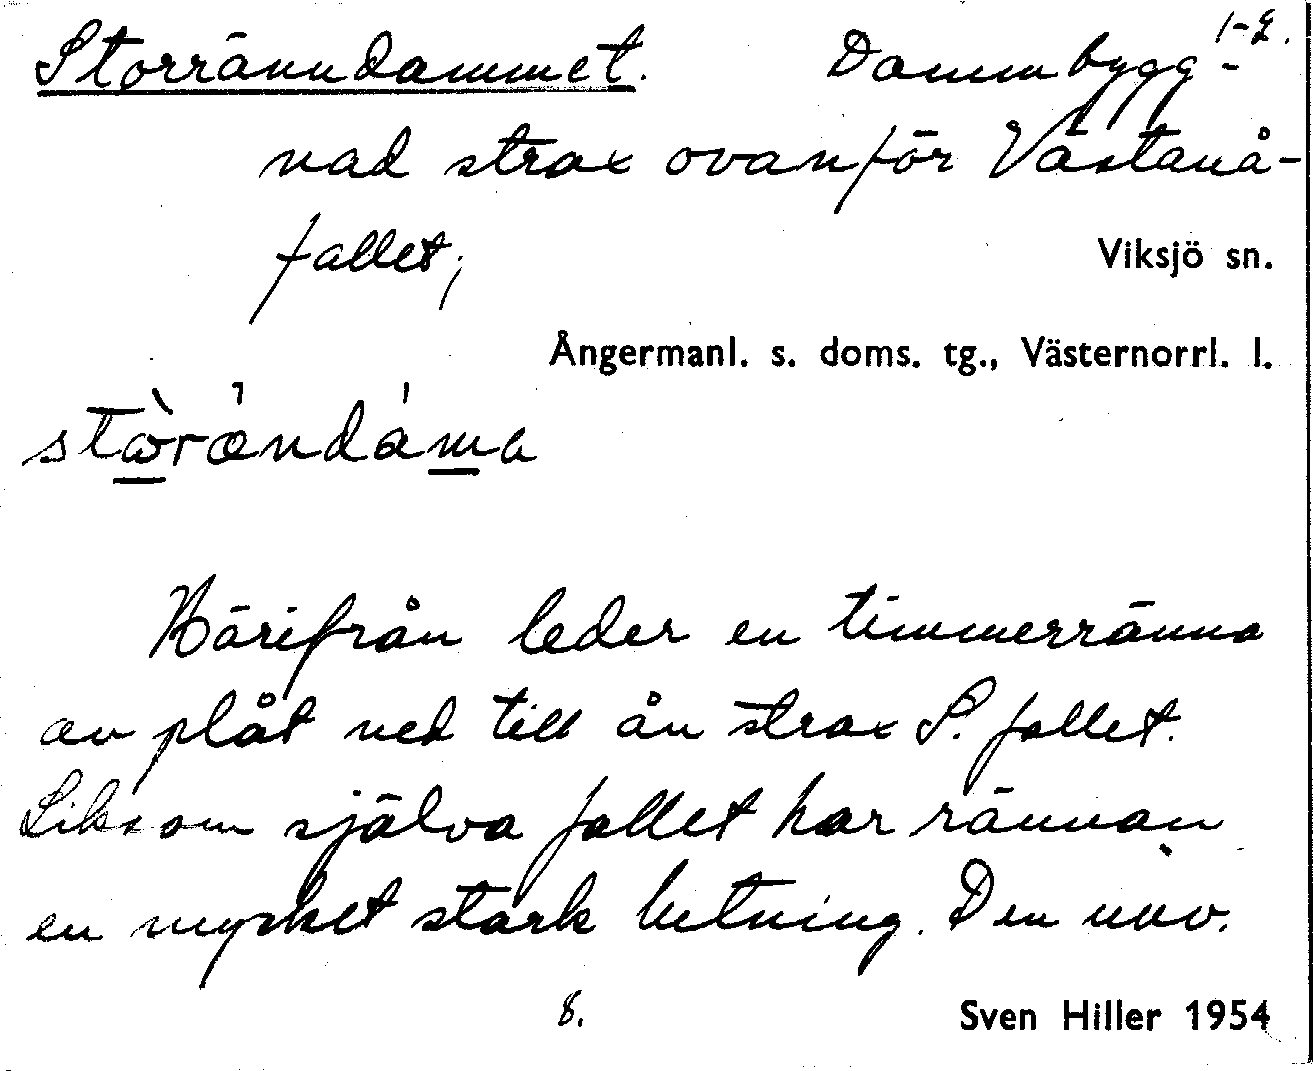 Storränndammet. Dammbygg- 1-2.
nad strax ovanför Västanå-
fallet;
Viksjö sn.
Ångermanl. s. doms. tg., Västernorrl. l.
Härifrån leder en timmerränna
av plåt ned till ån strax S. fallet.
Liksom själva fallet har rännan
en mycket stark lutning. Den nuv.
8.
Sven Hiller 1954